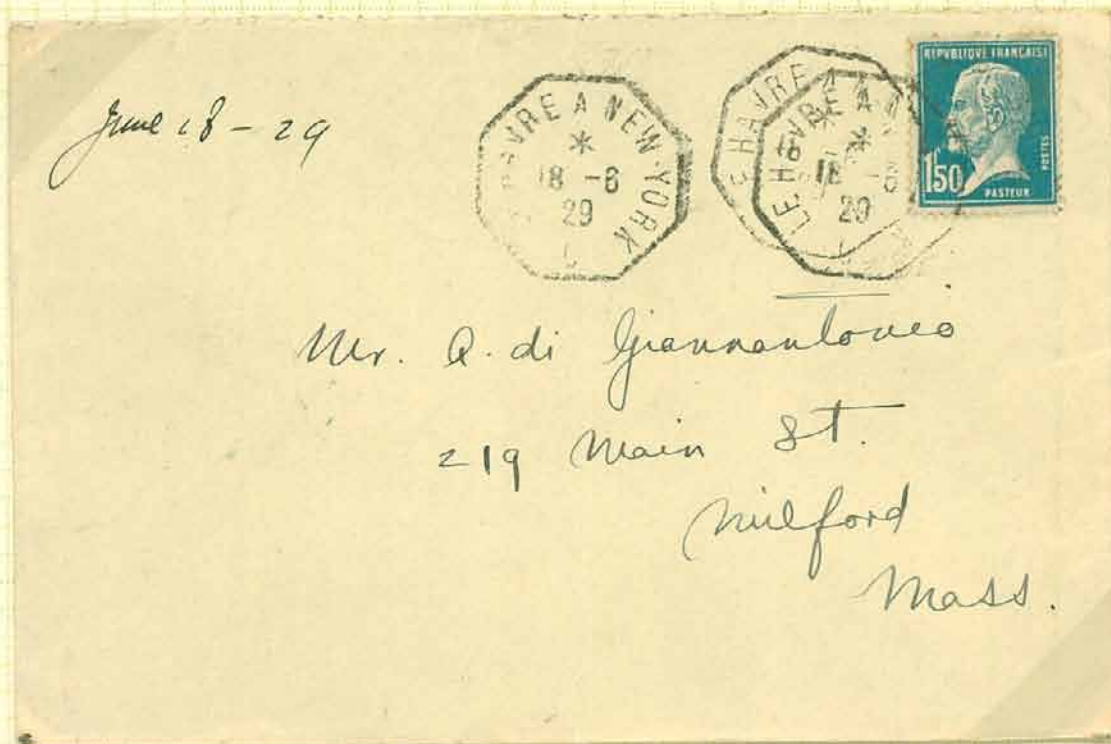 June 18 - 29
HAVRE A NEW-YORK
*
18 -6
29
LE HAVRE A
*
18
29
REPVBLIQVE FRANÇAISE
POSTES
1F50
PASTEUR
Mr. Q. di Giannantonio
219 Main St.
Milford
Mass.